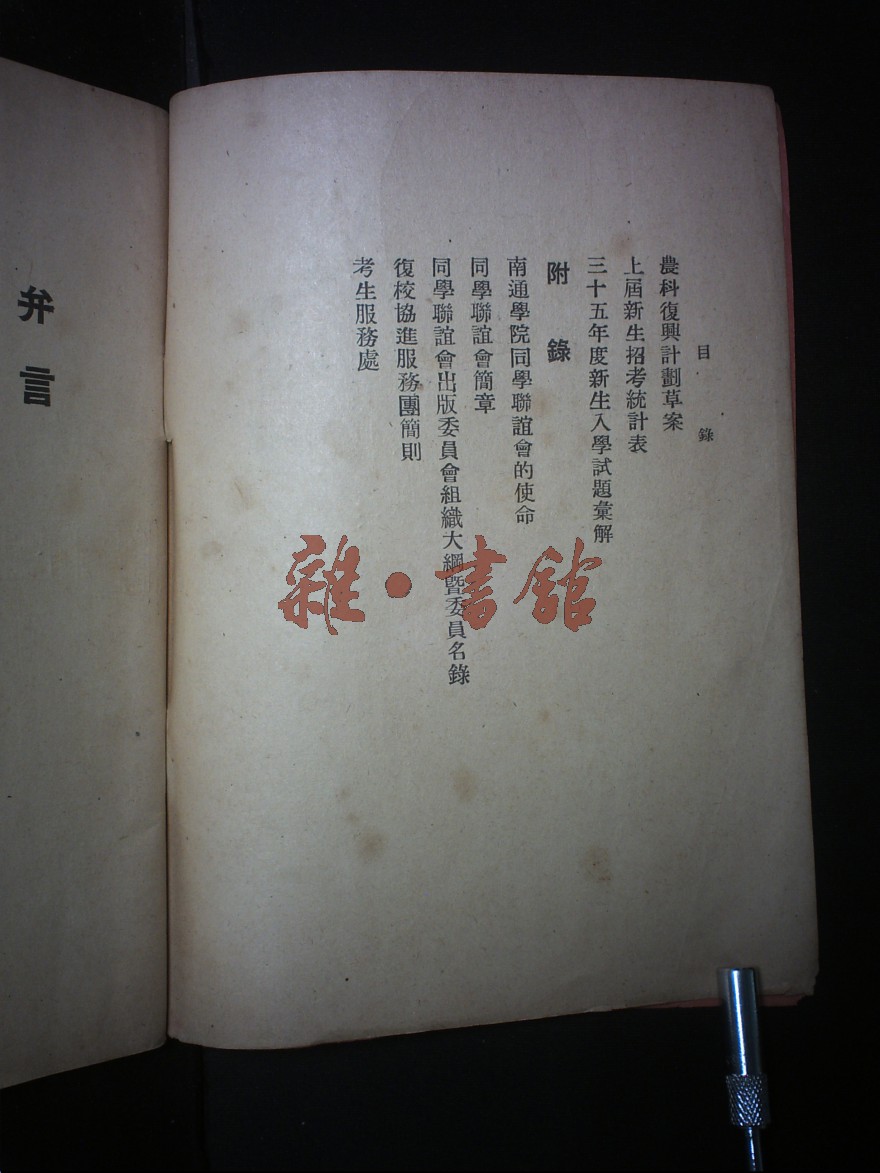 目錄
農科復興計劃草案
上屆新生招考統計表
三十五年度新生入學試題彙解
附錄
南通學院同學聯誼會的使命
同學聯誼會簡章
同學聯誼會出版委員會組織大綱暨委員名錄
復校協進服務團簡則
考生服務處
弁言
雜·書館